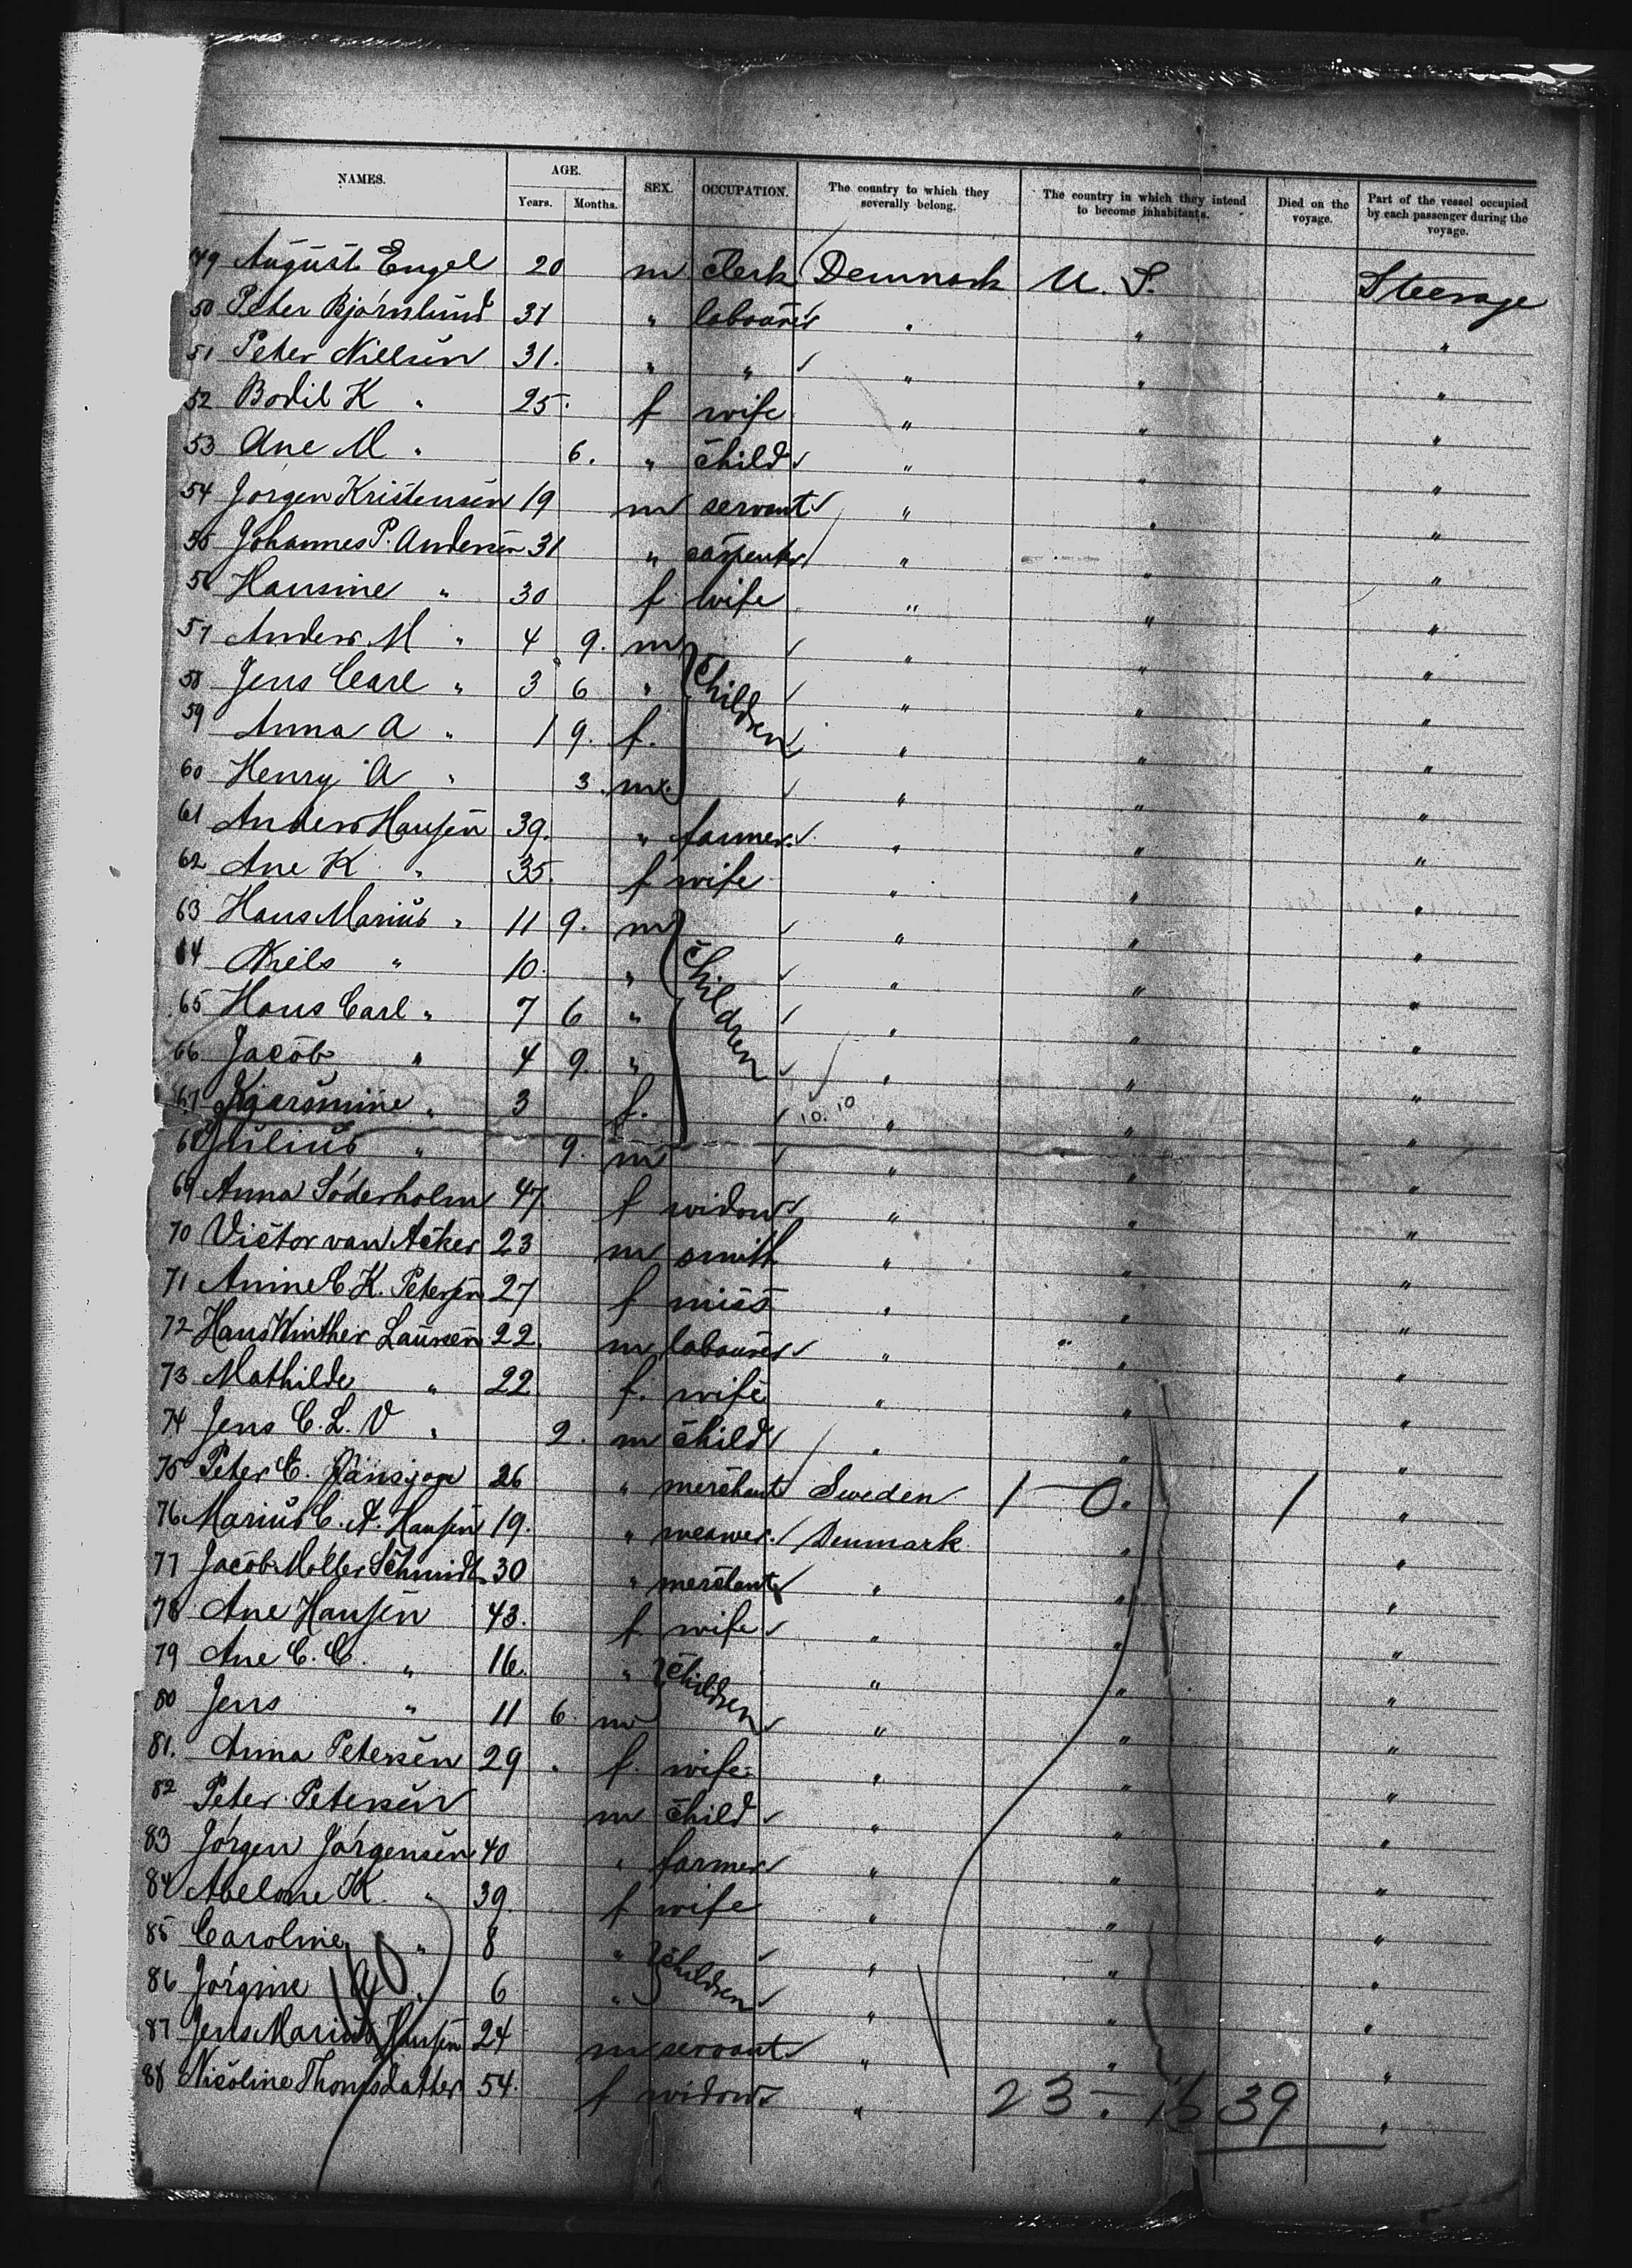 NAMES. AGE. SEX. OCCUPATION. The country to which they severally belong. The country in which they intend to become inhabitants. Died on the voyage. Part of the vessel occupied by each passenger during the voyage.
Years. Months.
149 August Engel 20 m clerk Denmark U. S. Steerage
50 Peter Bjørnlund 31 " labourer " " "
51 Peter Nielsen 31. " " " " "
52 Bodil K " 25. f wife " " "
53 Ane M " 6. " child " " "
54 Jørgen Kristensen 19 m servant " " "
55 Johannes P. Andersen 31 " carpenter " " "
56 Hansine " 30 f wife " " "
57 Anders M " 4 9. m children " " "
58 Jens Carl " 3 6 " " " "
59 Anna A " 1 9. f. " " "
60 Henry A " 3. m. " " "
61 Anders Hansen 39. " farmer " " "
62 Ane K " 35. f wife " " "
63 Hans Marius " 11 9. m children " " "
64 Niels " 10. " " " "
65 Hans Carl " 7 6 " " " "
66 Jacob " 4 9. " " " "
67 " 3 f. 10.10 " " "
68 Julius " 9. m " " "
69 Anna Söderholm 47. f widow " " "
70 Victor van Acker 23 m smith " " "
71 Anine C K. Petersen 27 f miss " " "
72 Hans Winther Laursen 22. m labourer " " "
73 Mathilde " 22. f. wife " " "
74 Jens C. L. V " 2. m child " " "
75 Peter E. 26 " merchant Sweden 1 - 0. 1 "
76 Marius C. A. Hansen 19. " weawer. Denmark " "
77 Jacob Møller Schmidt 30 " merchant " " "
78 Ane Hansen 43. f. wife " " "
79 Ane C. C. " 16. " children " " "
80 Jens " 11 6. m " " "
81. Anna Petersen 29. f. wife " " "
82 Peter Petersen m child " " "
83 Jörgen Jörgensen 40 " farmer " " "
84 Abelone K. " 39. f wife " " "
85 Caroline " 8 " children " " "
86 Jörgine A " 6 " " " "
87 Jens Marius Hansen 24 m servant " " "
88 Nicoline Thomsdatter 54. f widow " 23 - 15 39 "
40